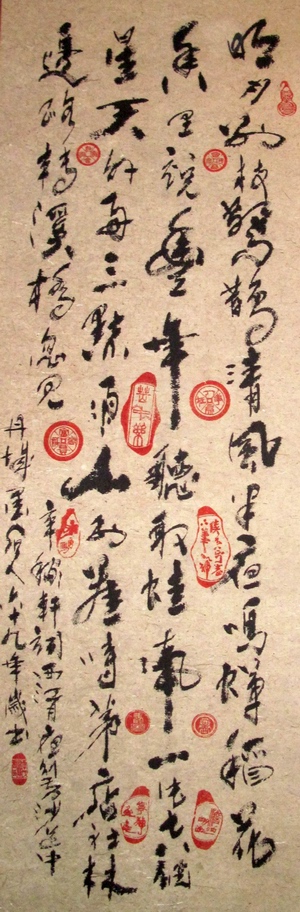 明月别枝驚鵲清風半夜鳴蟬稻花
香里說豐年聽取蛙聲一片七八個
星天外兩三點雨山前舊時茅店社林
邊路轉溪橋忽見
辛稼軒詞西江月夜行黄沙道中
丹城 人六十九年歲书